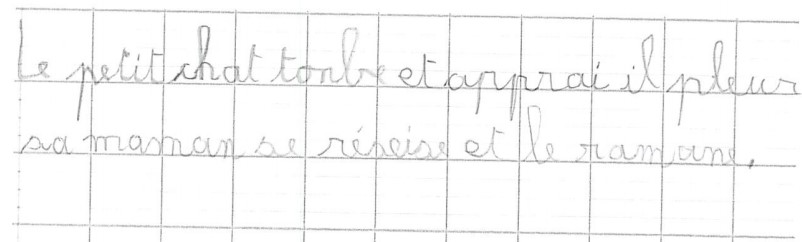 Le petit chat tonbe et apprai il pleur
sa maman se réveise et le ramane.